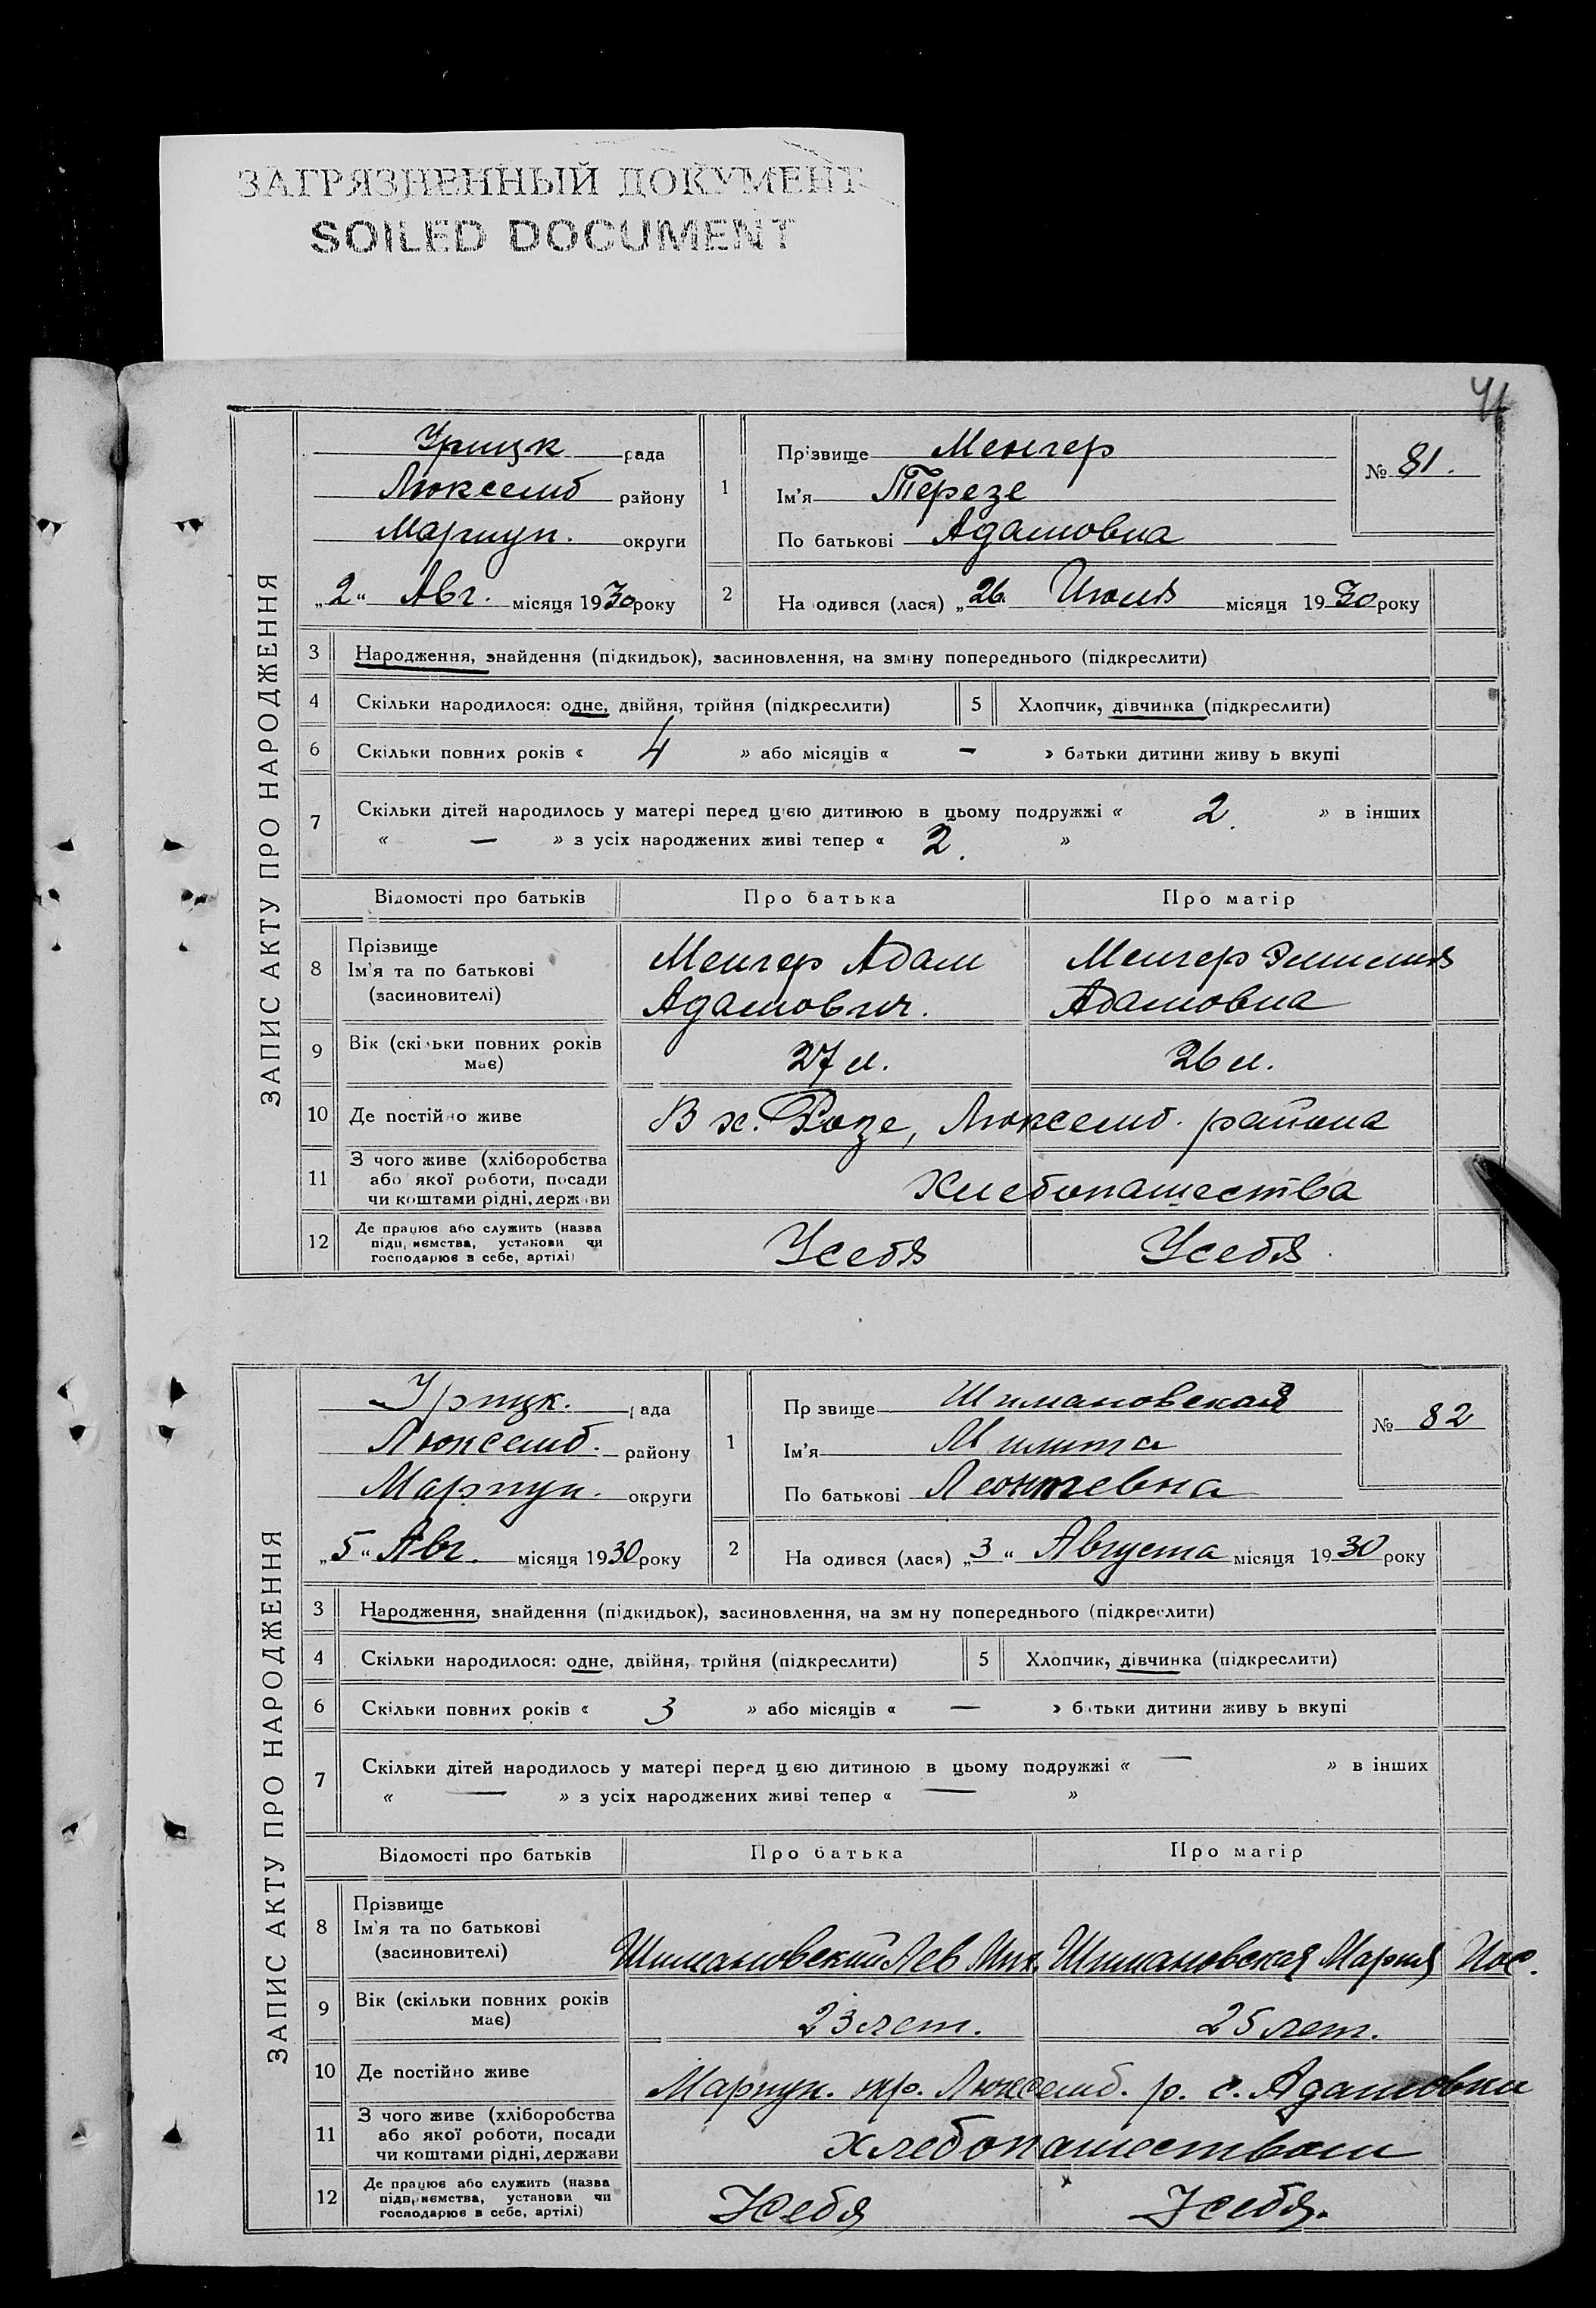 ЗАГРЯЗНЕННЫЙ ДОКУМЕНТ
SOILED DOCUMENT
41
ЗАПИС АКТУ ПРО НАРОДЖЕННЯ
Урицк рада
Люксемб району
Мариуп. округи
„2“ Авг. місяця 1930 року
1
Прізвище Менгер
Ім'я Терезе
По батькові Адамовна
№ 81.
2 На одився (лася) „26. Июля місяця 1930 року
3 Народження, знайдення (підкидьок), засиновлення, на зміну попереднього (підкреслити)
4 Скільки народилося: одне, двійня, трійня (підкреслити) 5 Хлопчик, дівчинка (підкреслити)
6 Скільки повних років « 4 » або місяців « — » батьки дитини живу ь вкупі
7 Скільки дітей народилось у матері перед цією дитиною в цьому подружжі « 2. » в інших
« — » з усіх народжених живі тепер « 2. »
Відомості про батьків Про батька Про матір
8 Прізвище
Ім'я та по батькові
(засиновителі)
Менгер Адам
Адамович.
Менгер Эмилия
Адамовна
9 Вік (скільки повних років
має)
27 л. 26 л.
10 Де постійно живе В х. Розе, Люксемб. района
11 З чого живе (хліборобства
або якої роботи, посади
чи коштами рідні, держави
Хлебопашества
12 Де працює або служить (назва
підприємства, установи чи
господарює в себе, артілі)
Усебя Усебя
ЗАПИС АКТУ ПРО НАРОДЖЕННЯ
Урицк. рада
Люксемб. району
Мариуп. округи
„5“ Авг. місяця 1930 року
1
Пр звище Шимановская
Ім'я Милита
По батькові Леонтевна
№ 82
2 На одився (лася) „3“ Августа місяця 1930 року
3 Народження, знайдення (підкидьок), засиновлення, на зм ну попереднього (підкреслити)
4 Скільки народилося: одне, двійня, трійня (підкреслити) 5 Хлопчик, дівчинка (підкреслити)
6 Скільки повних років « 3 » або місяців « — » батьки дитини живу ь вкупі
7 Скільки дітей народилось у матері перед цією дитиною в цьому подружжі « — » в інших
« — » з усіх народжених живі тепер « — »
Відомості про батьків Про батька Про матір
8 Прізвище
Ім'я та по батькові
(засиновителі)
Шимановский Лев Мих. Шимановская Мария Иос.
9 Вік (скільки повних років
має)
23 лет. 25 лет.
10 Де постійно живе Мариуп. окр. Люксемб. р. с. Адамовки
11 З чого живе (хліборобства
або якої роботи, посади
чи коштами рідні, держави
хлебопашеством
12 Де працює або служить (назва
підприємства, установи чи
господарює в себе, артілі)
Усебя Усебя.